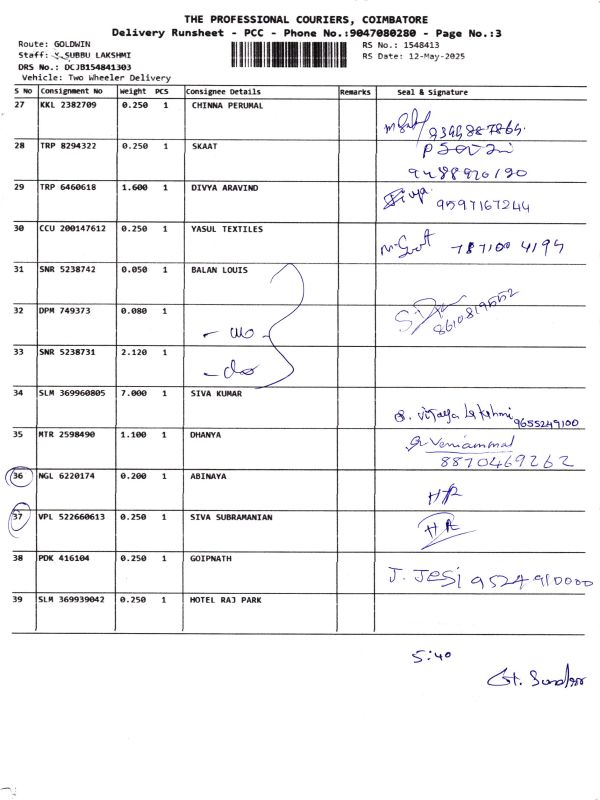 THE PROFESSIONAL COURIERS, COIMBATORE
Delivery Runsheet - PCC - Phone No.:9047080280 - Page No.:3
Route: GOLDWIN
RS No.: 1548413
Staff: Y.SUBBU LAKSHMI
RS Date: 12-May-2025
DRS No.: DCJB154841303
Vehicle: Two Wheeler Delivery
S No Consignment No Weight PCS Consignee Details Remarks Seal & Signature
27 KKL 2382709 0.250 1 CHINNA PERUMAL
28 TRP 8294322 0.250 1 SKAAT
9488920190
29 TRP 6460618 1.600 1 DIVYA ARAVIND
Divya 9597167244
30 CCU 200147612 0.250 1 YASUL TEXTILES
787100 4194
31 SNR 5238742 0.050 1 BALAN LOUIS
32 DPM 749373 0.080 1 - do -
8610819552
33 SNR 5238731 2.120 1 - do
34 SLM 369960805 7.000 1 SIVA KUMAR
S. Vijaya Lakshmi 9655249100
35 MTR 2598490 1.100 1 DHANYA
R. Veniammal
8870469262
36 NGL 6220174 0.200 1 ABINAYA
37 VPL 522660613 0.250 1 SIVA SUBRAMANIAN
38 PDK 416104 0.250 1 GOIPNATH
J. Jesi 9524910000
39 SLM 369939042 0.250 1 HOTEL RAJ PARK
5:40